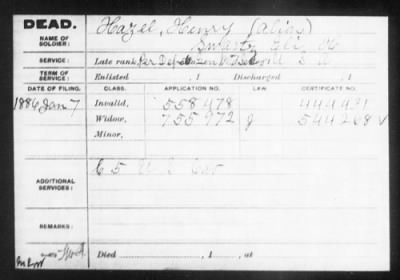 DEAD.
NAME OF SOLDIER:
Hazel, Henry (alias)
Swartz, Eli,
SERVICE:
Late rank,
TERM OF SERVICE:
Enlisted , 1 Discharged , 1
DATE OF FILING. CLASS. APPLICATION NO. LAW CERTIFICATE NO.
1886 Jan 7 Invalid, 558478 444431
Widow, 755972 J 544268 v
Minor,
ADDITIONAL SERVICES:
C 5 U S Cav
REMARKS:
Died , 1 , at